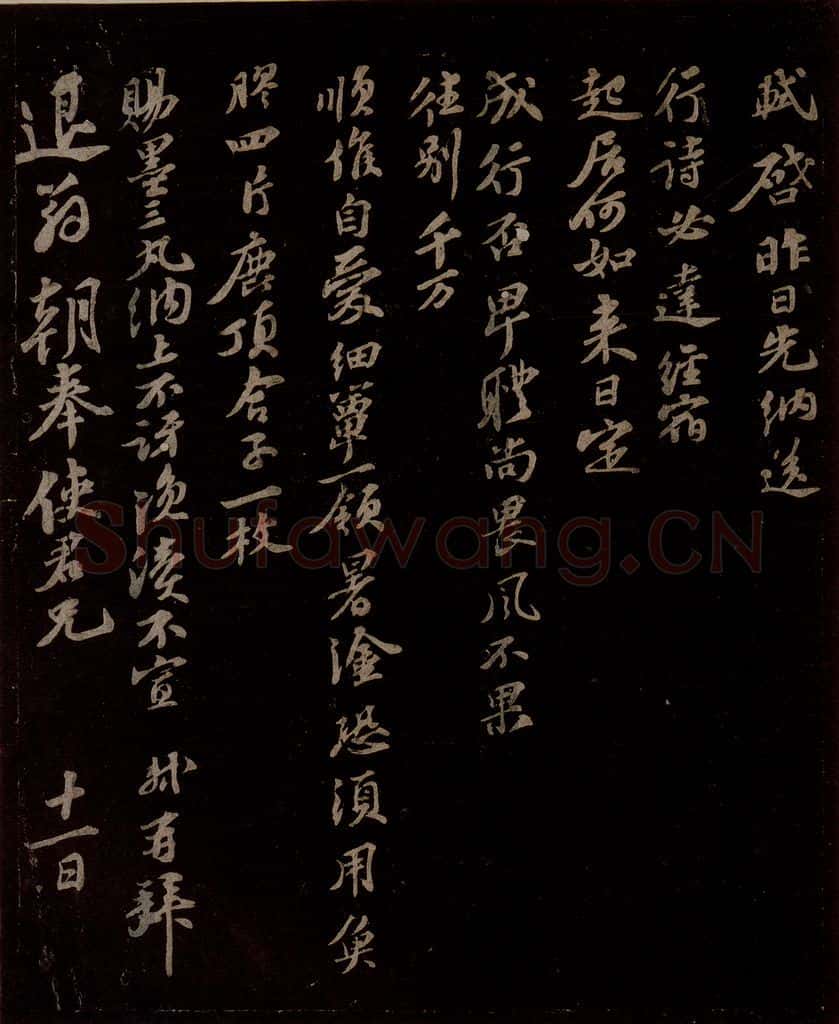 軾啓昨日先納送
行詩必達經宿
起居何如來日定
成行否畢聘尚畏風不果
往別千万
順候自愛細簟一領暑塗恐須用魚
膠四片唐頂合子一枚
賜墨三丸納上不訝浼瀆不宣 軾再拜
退翁朝奉使君兄 十一日
Shufawang.CN